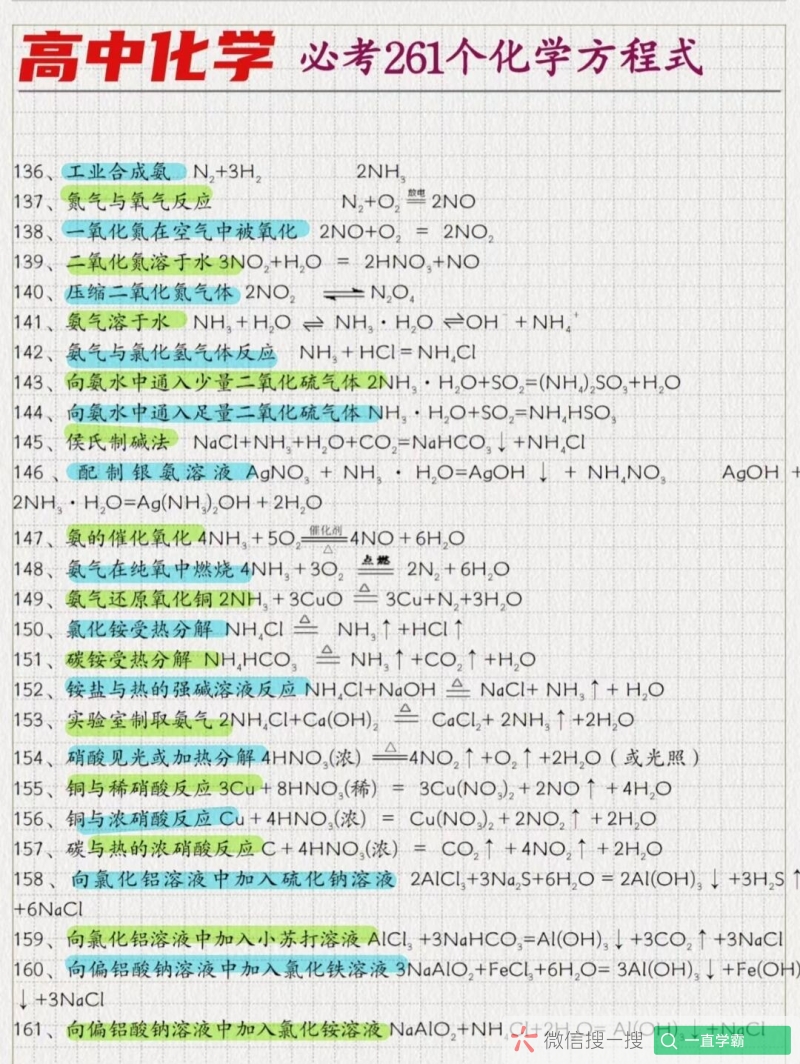 高中化学 必考261个化学方程式
136、工业合成氨 N₂+3H₂ 2NH₃
137、氮气与氧气反应 N₂+O₂ 放电══ 2NO
138、一氧化氮在空气中被氧化 2NO+O₂ = 2NO₂
139、二氧化氮溶于水 3NO₂+H₂O = 2HNO₃+NO
140、压缩二氧化氮气体 2NO₂ ⇌ N₂O₄
141、氨气溶于水 NH₃+H₂O ⇌ NH₃·H₂O ⇌OH⁻+NH₄⁺
142、氨气与氯化氢气体反应 NH₃+HCl=NH₄Cl
143、向氨水中通入少量二氧化硫气体 2NH₃·H₂O+SO₂=(NH₄)₂SO₃+H₂O
144、向氨水中通入足量二氧化硫气体 NH₃·H₂O+SO₂=NH₄HSO₃
145、侯氏制碱法 NaCl+NH₃+H₂O+CO₂=NaHCO₃↓+NH₄Cl
146、配制银氨溶液 AgNO₃ + NH₃·H₂O=AgOH↓ + NH₄NO₃ AgOH +
2NH₃·H₂O=Ag(NH₃)₂OH+2H₂O
147、氨的催化氧化 4NH₃+5O₂ 催化剂══△ 4NO+6H₂O
148、氨气在纯氧中燃烧 4NH₃+3O₂ 点燃══ 2N₂+6H₂O
149、氨气还原氧化铜 2NH₃+3CuO △══ 3Cu+N₂+3H₂O
150、氯化铵受热分解 NH₄Cl △══ NH₃↑+HCl↑
151、碳铵受热分解 NH₄HCO₃ △══ NH₃↑+CO₂↑+H₂O
152、铵盐与热的强碱溶液反应 NH₄Cl+NaOH △══ NaCl+ NH₃↑+ H₂O
153、实验室制取氨气 2NH₄Cl+Ca(OH)₂ △══ CaCl₂+ 2NH₃↑+2H₂O
154、硝酸见光或加热分解 4HNO₃(浓) △══ 4NO₂↑+O₂↑+2H₂O（或光照）
155、铜与稀硝酸反应 3Cu+8HNO₃(稀) = 3Cu(NO₃)₂+2NO↑+4H₂O
156、铜与浓硝酸反应 Cu+4HNO₃(浓) = Cu(NO₃)₂+2NO₂↑+2H₂O
157、碳与热的浓硝酸反应 C+4HNO₃(浓) = CO₂↑+4NO₂↑+2H₂O
158、向氯化铝溶液中加入硫化钠溶液 2AlCl₃+3Na₂S+6H₂O=2Al(OH)₃↓+3H₂S↑
+6NaCl
159、向氯化铝溶液中加入小苏打溶液 AlCl₃+3NaHCO₃=Al(OH)₃↓+3CO₂↑+3NaCl
160、向偏铝酸钠溶液中加入氯化铁溶液 3NaAlO₂+FeCl₃+6H₂O= 3Al(OH)₃↓+Fe(OH)
↓+3NaCl
161、向偏铝酸钠溶液中加入氯化铵溶液 NaAlO₂+NH₄Cl+2H₂O= Al(OH)₃↓+NaCl
微信搜一搜 一直学霸